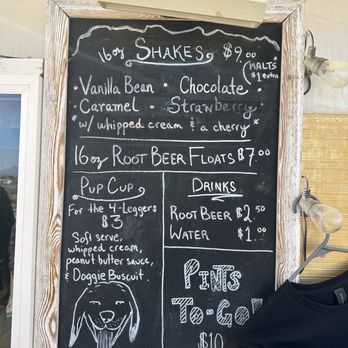 16oz SHAKES $9.00
(MALTS
$1 extra
• Vanilla Bean • Chocolate •
• Caramel • Strawberry •
* w/ whipped cream & a cherry *
16oz ROOT BEER FLOATS $7.00
PUP CUP
For the 4-Leggers
$3
Soft serve,
whipped cream,
peanut butter sauce,
& Doggie Buscuit.
DRINKS
ROOT BEER $2.50
WATER $1.00
PINTS
TO-GO!
$10